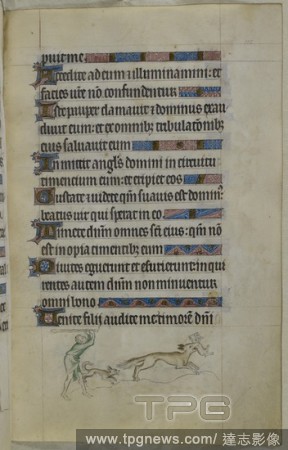 puit me.
Accedite ad eum et illuminamini: et
facies vr̄e non confundentur
Iste pauper clamauit et dominus exau
diuit eum: et ex omnibȝ tribulac̄onibȝ
eius saluauit eum
Inmittit angl̄s domini in circuitu
timencium eum: et eripiet eos
Gustate et uidete qm̄ suauis est domin⁹:
beatus uir qui sperat in eo.
Timete dn̄m omnes sc̄i eius: qm̄ nō
est inopia timentibȝ eum
Diuites eguerunt et esurierunt: inqui
rentes autem dn̄m non minuentur
omni bono
Venite filii audite me timorē dn̄i
TPG
www.tpgnews.com/ 達志影像